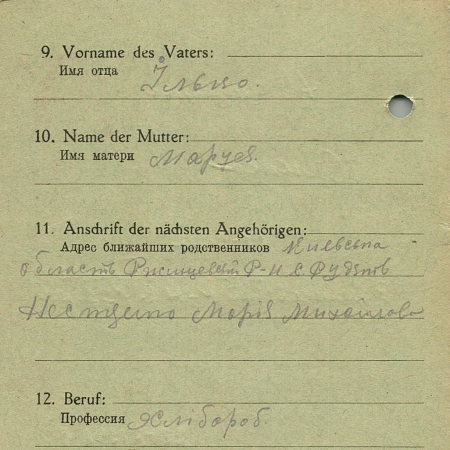 9. Vorname des Vaters:
Имя отца Ілько.
10. Name der Mutter:
Имя матери Маруся.
11. Anschrift der nächsten Angehörigen:
Адрес ближайших родственников Киевська
область Р-Н С
Марія Михайлова
12. Beruf:
Профессия Хлібороб.